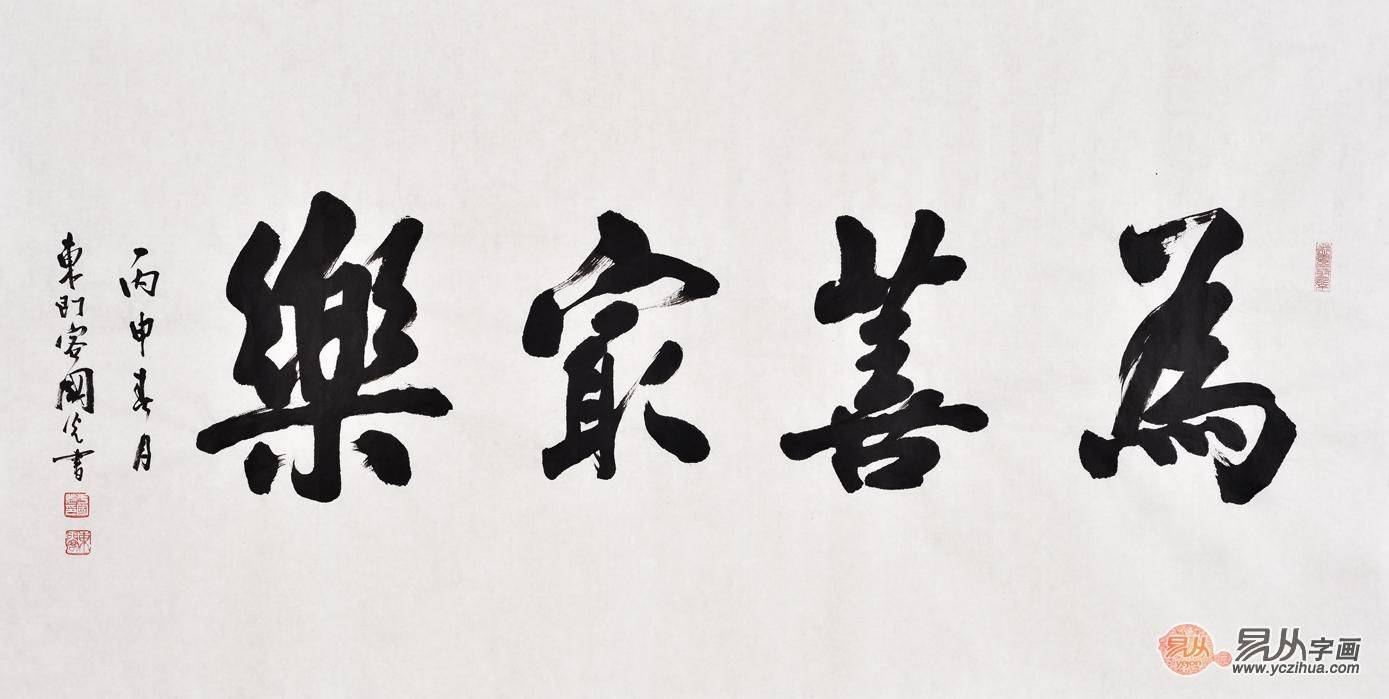 為善冣樂
丙申春月
東門客國光書
易从字画
www.yczihua.com